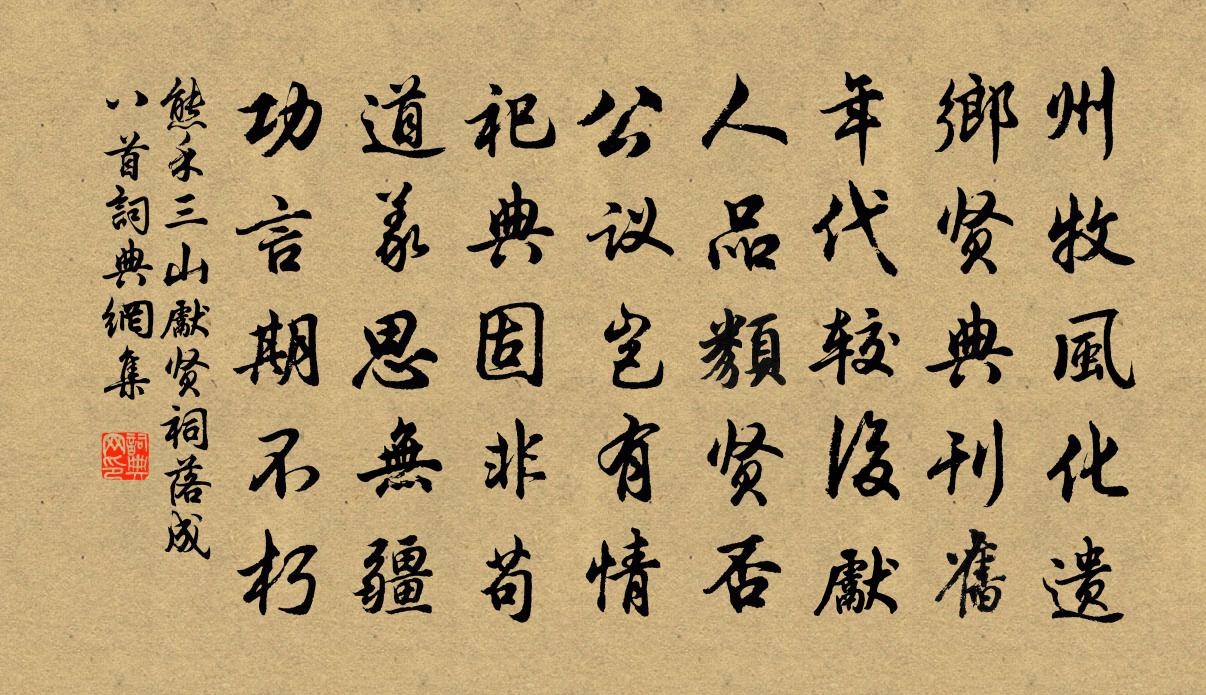 州牧風化遗
鄉贤典刊舊
年代较後獻
人品類贤否
公议岂有情
祀典固非苟
道义思無疆
功言期不朽
熊禾三山獻贤祠落成
八首詞典網集
詞典网印